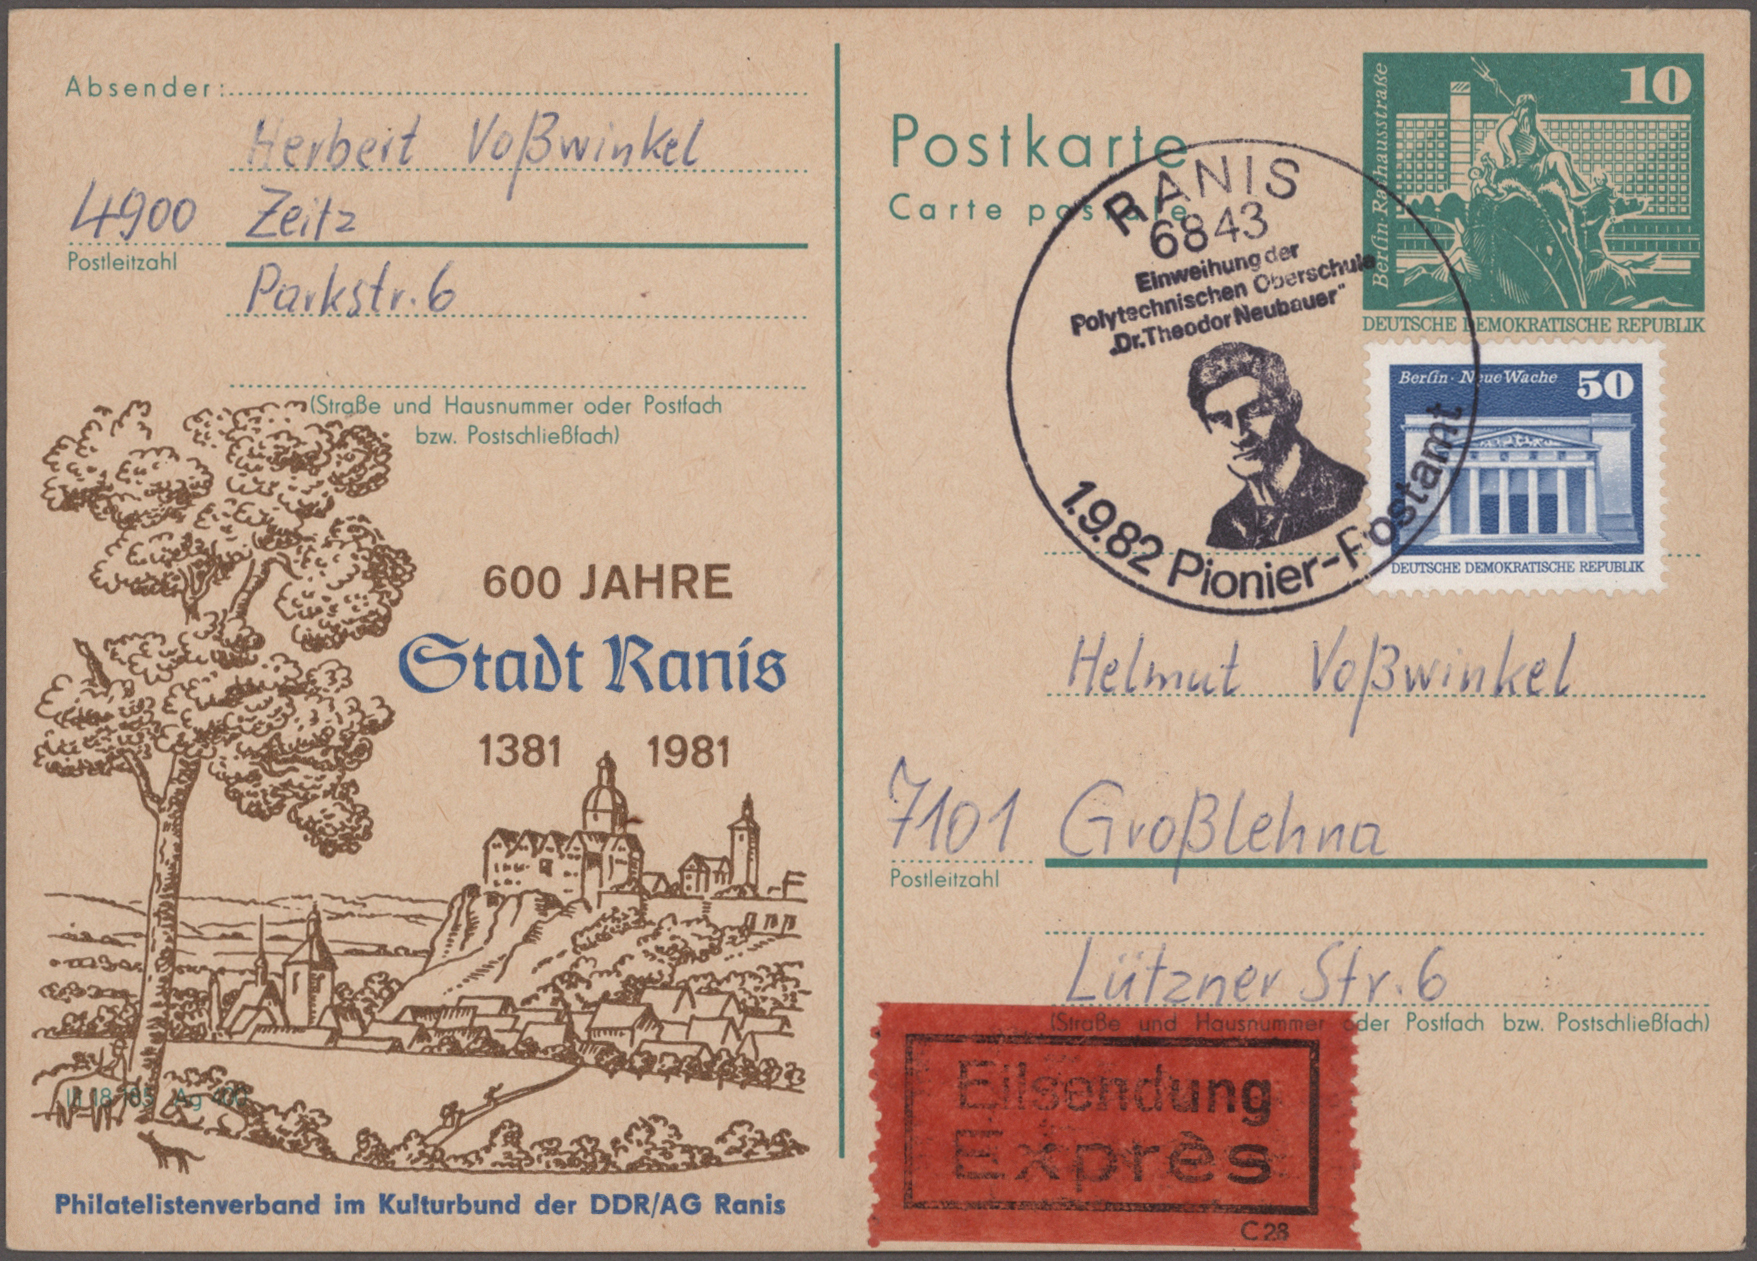 Absender:
Herbert Voßwinkel
4900 Zeitz
Postleitzahl
Parkstr. 6
(Straße und Hausnummer oder Postfach
bzw. Postschließfach)
600 JAHRE
Stadt Ranis
1381 1981
Philatelistenverband im Kulturbund der DDR/AG Ranis
Postkarte
Carte postale
10
Berlin Rathausstraße
DEUTSCHE DEMOKRATISCHE REPUBLIK
Berlin · Neue Wache 50
DEUTSCHE DEMOKRATISCHE REPUBLIK
RANIS
6843
Einweihung der
Polytechnischen Oberschule
„Dr. Theodor Neubauer"
1.9.82 Pionier-Postamt
Helmut Voßwinkel
7101 Großlehna
Postleitzahl
Lützner Str. 6
(Straße und Hausnummer oder Postfach bzw. Postschließfach)
Eilsendung
Exprès
C 28